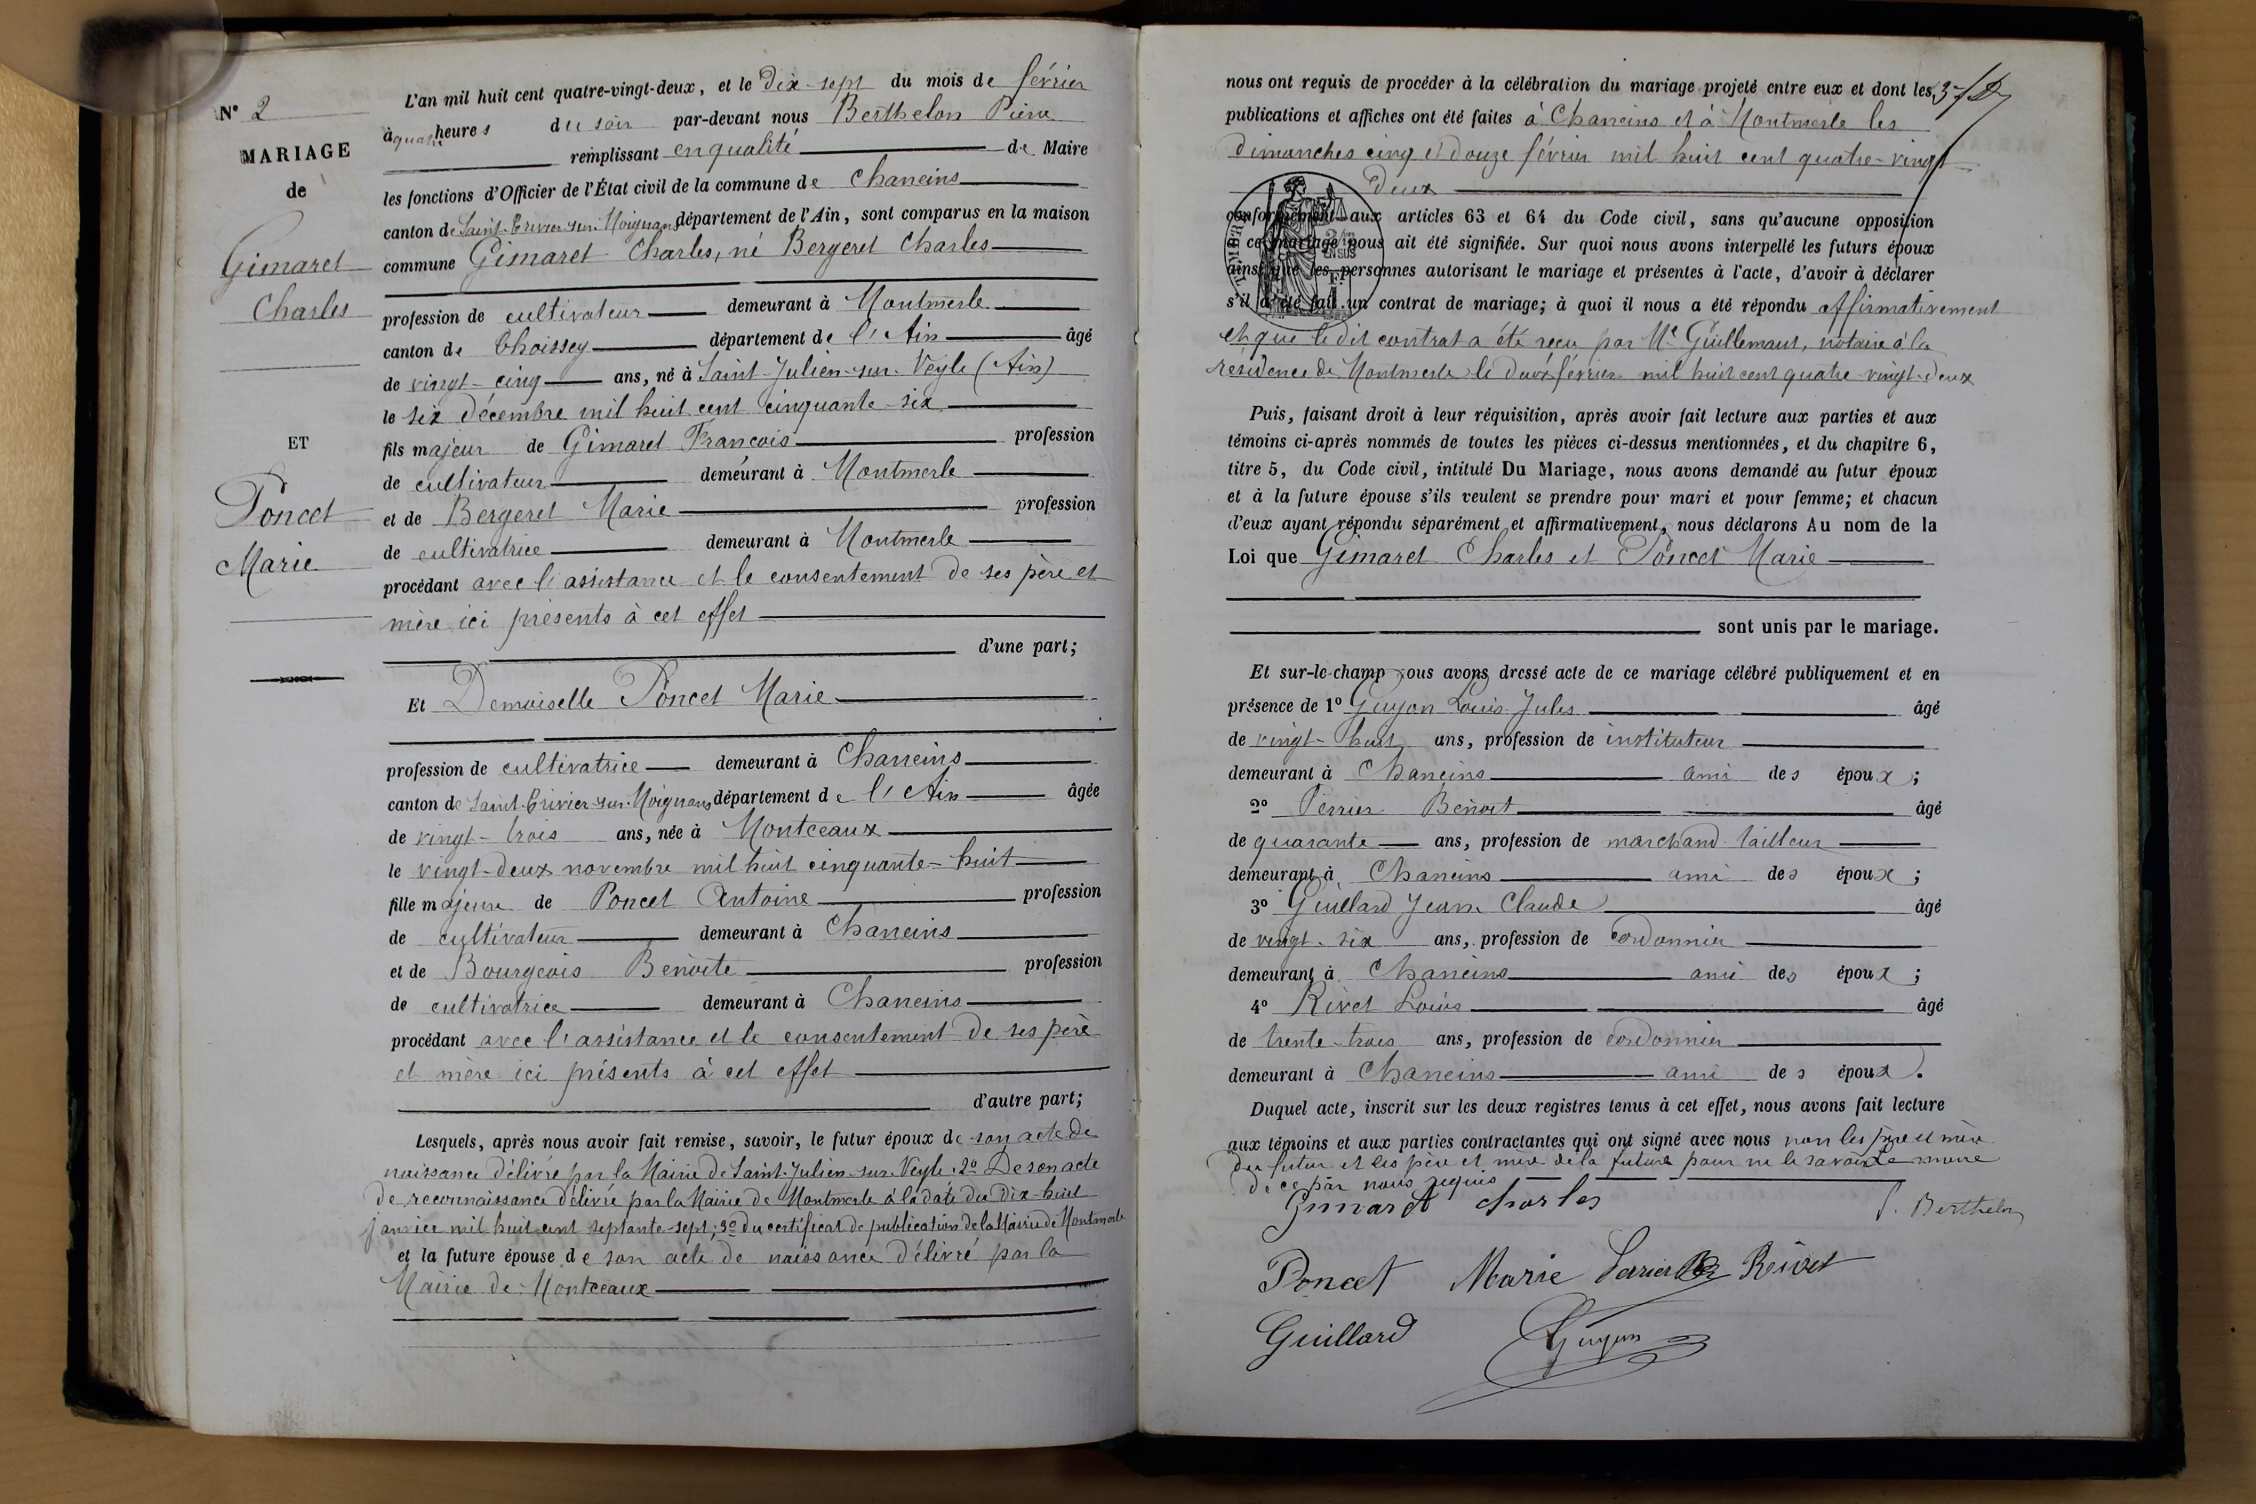 N° 2
MARIAGE
de
Gimaret
Charles
ET
Poncet
Marie
L'an mil huit cent quatre-vingt-deux, et le dix-sept du mois de février
à quatre heures du soir par-devant nous Berthelon Pierre
remplissant en qualité de Maire
les fonctions d'Officier de l'État civil de la commune de Chaneins
canton de Saint-Trivier-sur-Moignans département de l'Ain, sont comparus en la maison
commune Gimaret Charles, né Bergeret Charles
profession de cultivateur demeurant à Montmerle
canton de Thoissey département de l'Ain âgé
de vingt-cinq ans, né à Saint-Julien-sur-Veyle (Ain)
le six décembre mil huit cent cinquante-six
fils majeur de Gimaret François profession
de cultivateur demeurant à Montmerle
et de Bergeret Marie profession
de cultivatrice demeurant à Montmerle
procédant avec l'assistance et le consentement de ses père et
mère ici présents à cet effet
d'une part;
Et Demoiselle Poncet Marie
profession de cultivatrice demeurant à Chaneins
canton de Saint-Trivier-sur-Moignans département de l'Ain âgée
de vingt-trois ans, née à Montceaux
le vingt-deux novembre mil huit cinquante-huit
fille majeure de Poncet Antoine profession
de cultivateur demeurant à Chaneins
et de Bourgeois Benoite profession
de cultivatrice demeurant à Chaneins
procédant avec l'assistance et le consentement de ses père
et mère ici présents à cet effet
d'autre part;
Lesquels, après nous avoir fait remise, savoir, le futur époux de son acte de
naissance délivré par la Mairie de Saint-Julien-sur-Veyle; 2° De son acte
de reconnaissance délivré par la Mairie de Montmerle à la date du dix-huit
janvier mil huit cent septante-sept; 3° du certificat de publication de la Mairie de Montmerle
et la future épouse de son acte de naissance délivré par la
Mairie de Montceaux
nous ont requis de procéder à la célébration du mariage projeté entre eux et dont les
publications et affiches ont été faites à Chaneins et à Montmerle les
dimanches cinq et douze février mil huit cent quatre-vingt
deux
conformément aux articles 63 et 64 du Code civil, sans qu'aucune opposition
à ce mariage nous ait été signifiée. Sur quoi nous avons interpellé les futurs époux
ainsi que les personnes autorisant le mariage et présentes à l'acte, d'avoir à déclarer
s'il a été fait un contrat de mariage; à quoi il nous a été répondu affirmativement
et que le dit contrat a été reçu par Me Guillemaut, notaire à la
résidence de Montmerle le deux février mil huit cent quatre-vingt-deux
Puis, faisant droit à leur réquisition, après avoir fait lecture aux parties et aux
témoins ci-après nommés de toutes les pièces ci-dessus mentionnées, et du chapitre 6,
titre 5, du Code civil, intitulé Du Mariage, nous avons demandé au futur époux
et à la future épouse s'ils veulent se prendre pour mari et pour femme; et chacun
d'eux ayant répondu séparément et affirmativement, nous déclarons Au nom de la
Loi que Gimaret Charles et Poncet Marie
sont unis par le mariage.
Et sur-le-champ nous avons dressé acte de ce mariage célébré publiquement et en
présence de 1° Guyon Louis Jules âgé
de vingt-huit ans, profession de instituteur
demeurant à Chaneins ami des époux;
2° Perrier Benoit âgé
de quarante ans, profession de marchand tailleur
demeurant à Chaneins ami des époux;
3° Guillard Jean Claude âgé
de vingt-six ans, profession de cordonnier
demeurant à Chaneins ami des époux;
4° Rivet Louis âgé
de trente-trois ans, profession de cordonnier
demeurant à Chaneins ami des époux.
Duquel acte, inscrit sur les deux registres tenus à cet effet, nous avons fait lecture
aux témoins et aux parties contractantes qui ont signé avec nous non les père et mère
du futur et les père et mère de la future pour ne le savoir
de ce par nous requis
Gimaret Charles
P. Berthelon
Poncet Marie Perrier Rivet
Guillard Guyon